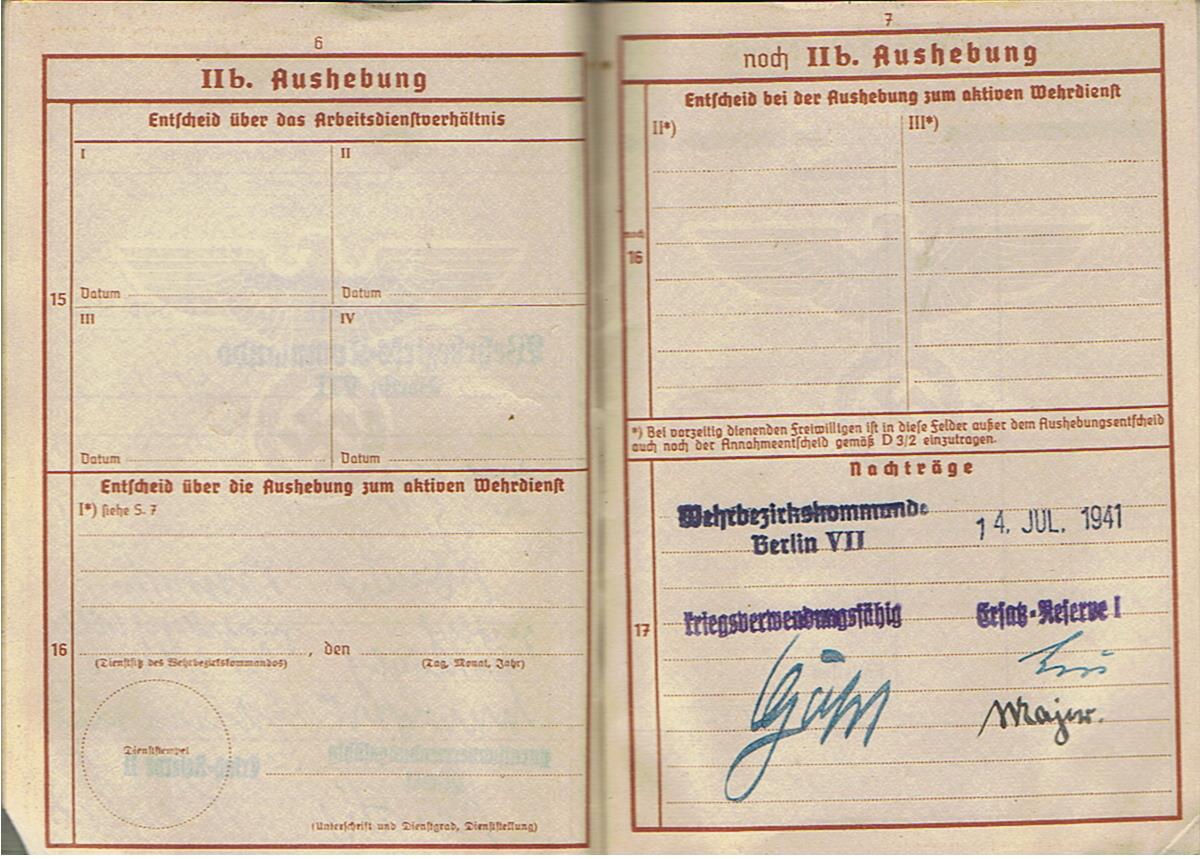 6
IIb. Aushebung
Entscheid über das Arbeitsdienstverhältnis
15
I
II
Datum
Datum
III
IV
Datum
Datum
Entscheid über die Aushebung zum aktiven Wehrdienst
I*) siehe S. 7
16
, den
(Dienstsitz des Wehrbezirkskommandos)
(Tag, Monat, Jahr)
Dienststempel
(Unterschrift und Dienstgrad, Dienststellung)
7
noch IIb. Aushebung
Entscheid bei der Aushebung zum aktiven Wehrdienst
II*)
III*)
noch
16
*) Bei vorzeitig dienenden Freiwilligen ist in diese Felder außer dem Aushebungsentscheid
auch noch der Annahmeentscheid gemäß D 3/2 einzutragen.
Nachträge
Wehrbezirkskommando
Berlin VII
14. JUL. 1941
17
kriegsverwendungsfähig
Ersatz-Reserve I
Major.